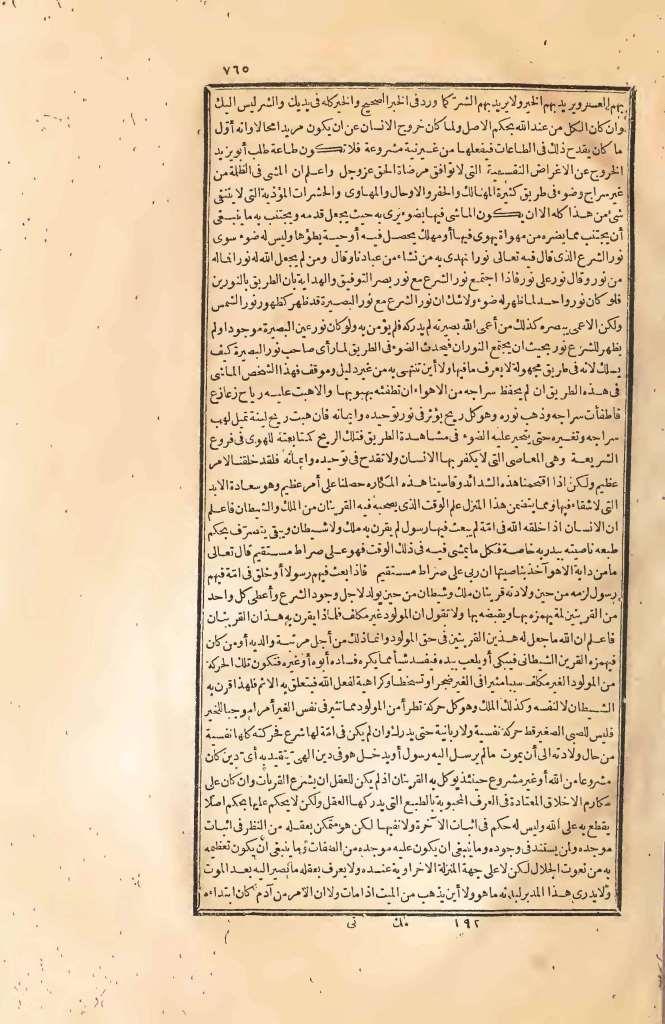 ٧٦٥
بهم العسر ويريد بهم الخير ولا يريد بهم الشر كما ورد فى الخبر الصحيح والخير كله فى يديك والشر ليس اليك
وان كان الكل من عند الله بحكم الاصل ولما كان خروج الانسان عن ان يكون مريدا محالا وانه أوّل
ما كان يقدح ذلك فى الطاعات فيفعلها من غير نية مشروعة فلا تكون طاعة طلب أبو يزيد
الخروج عن الاغراض النفسية التى لا توافق مرضاة الحق عز وجل واعلم ان المشى فى الظلمة من
غير سراج وضوء فى طريق كثيرة المهالك والحفر والاوحال والمهاوى والحشرات المؤذية التى لا يتقى
شئ من هذا كله الا ان يكون الماشى فيها بضوء يرى به حيث يجعل قدمه ويجتنب به ما ينبغى
أن يجتنب مما يضره من مهواة يهوى فيها أو مهلك يحصل فيه أو حية يطؤها وليس له ضوء سوى
نور الشرع الذى قال فيه تعالى نورا نهدى به من نشاء من عبادنا وقال ومن لم يجعل الله له نورا فما له
من نور وقال نور على نور فاذا اجتمع نور الشرع مع نور بصر التوفيق والهداية بان الطريق بالنورين
فلو كان نورا واحدا لما ظهر له ضوء ولا شك ان نور الشرع مع نور البصيرة قد ظهر كظهور نور الشمس
ولكن الاعمى ببصره كذلك من أعمى الله بصيرته لم يدركه فلم يؤمن به ولو كان نور عين البصيرة موجودا ولم
يظهر للشرع نور بحيث ان يجتمع النوران فيحدث الضوء فى الطريق لما رأى صاحب نور البصيرة كيف
يسلك لانه فى طريق مجهولة لا يعرف ما فيها ولا أين تنتهى به من غير دليل وموقف فهذا الشخص الماشى
فى هذه الطريق ان لم يحفظ سراجه من الاهواء ان تطفئه بهبوبها والا هبت عليه رياح زعازع
فاطفأت سراجه وذهب نوره وهو كل ريح يؤثر فى نور توحيده وايمانه فان هبت ريح لينة تميل لهب
سراجه وتغيره حتى يتحير عليه الضوء فى مشاهدة الطريق فتلك الريح كمتابعته للهوى فى فروع
الشريعة وهى المعاصى التى لا يكفر بها الانسان ولا تقدح فى توحيده وايمانه فلقد خلقنا لامر
عظيم ولكن اذا اقتحمنا هذه الشدائد وقاسينا هذه المكاره حصلنا على أمر عظيم وهو سعادة الابد
التى لا شقاء فيها ومما يتضمن هذا المنزل علم الوقت الذى يصحبه فيه القرينان من الملك والشيطان فاعلم
ان الانسان اذا خلقه الله فى امّة لم يبعث فيها رسول لم يقرن به ملك ولا شيطان ويبقى يتصرّف بحكم
طبعه ناصيته بيد ربه خاصة فكل ما يمشى فيه فى ذلك الوقت فهو على صراط مستقيم قال تعالى
ما من دابة الا هو آخذ بناصيتها ان ربى على صراط مستقيم فاذا بعث فيهم رسولا أو خلق فى امّة فيهم
رسول لزمه من حين ولادته قرينان ملك وشيطان من حين يولد لاجل وجود الشرع وأعطى كل واحد
من القرينين لمة يهمزه بها ويقبضه بها ولا تقول ان المولود غير مكلف فلماذا يقرن به هذان القرينان
فاعلم ان الله ما جعل له هذين القرينين فى حق المولود وانما ذلك من أجل مرتبة والديه أو من كان
فيهمزه القرين الشيطانى فيبكى أو يلعب بيده فيفسد شيأ مما يكره فساده أبوه أو غيره فتكون تلك الحركة
من المولود الغير مكلف سببا مثيرا فى الغير ضجرا وتسخطا وكراهية لفعل الله فيتعلق به الاثم فلهذا قرن به
الشيطان لا لنفسه وكذلك الملك وهو كل حركة تطرأ من المولود مما تثير فى نفس الغير أمرا موجبا للخير
فليس للصبى الصغير قط حركة نفسية ولا ربانية حتى يدرك وان لم يكن فى امّة لها شرع فحركته كلها نفسية
من حال ولادته الى أن يموت ما لم يرسل اليه رسول أو يدخل هو فى دين الهى يتقيد به أى دين كان
مشروعا من الله أو غير مشروع حينئذ يوكل به القرينان اذ لم يكن للعقل ان يشرع القربات وان كان على
مكارم الاخلاق المعتادة فى العرف المحبوبة بالطبع التى يدركها العقل ولكن لا يحكم عليها بحكم أصلا
يقطع به على الله وليس له حكم فى اثبات الآخرة ولا نفيها لكن هو متمكن بعقله من النظر فى اثبات
موجده ولمن يستند فى وجوده وما ينبغى ان يكون عليه موجده من الصفات وما ينبغى أن يكون تعظيمه
به من نعوت الجلال لكن لا على جهة المنزلة الاخراوية عنده ولا يعرف بعقله ما يصير اليه بعد الموت
ولا يدرى هذا المدبر لبدنه ما هو ولا أين يذهب من الميت اذا مات ولا ان الامر من آدم كان ابتداءه
١٩٢ مك نى